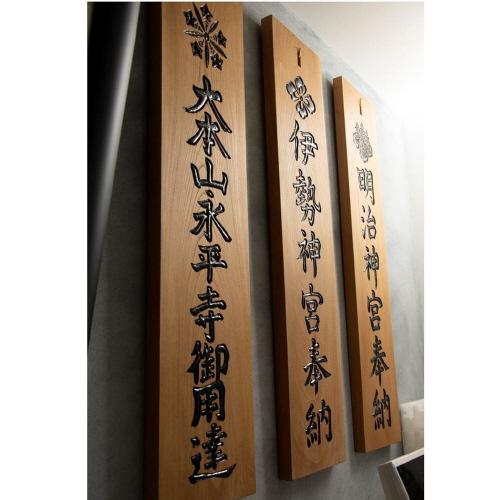 明治神宮奉納
伊勢神宮奉納
大本山永平寺御用達